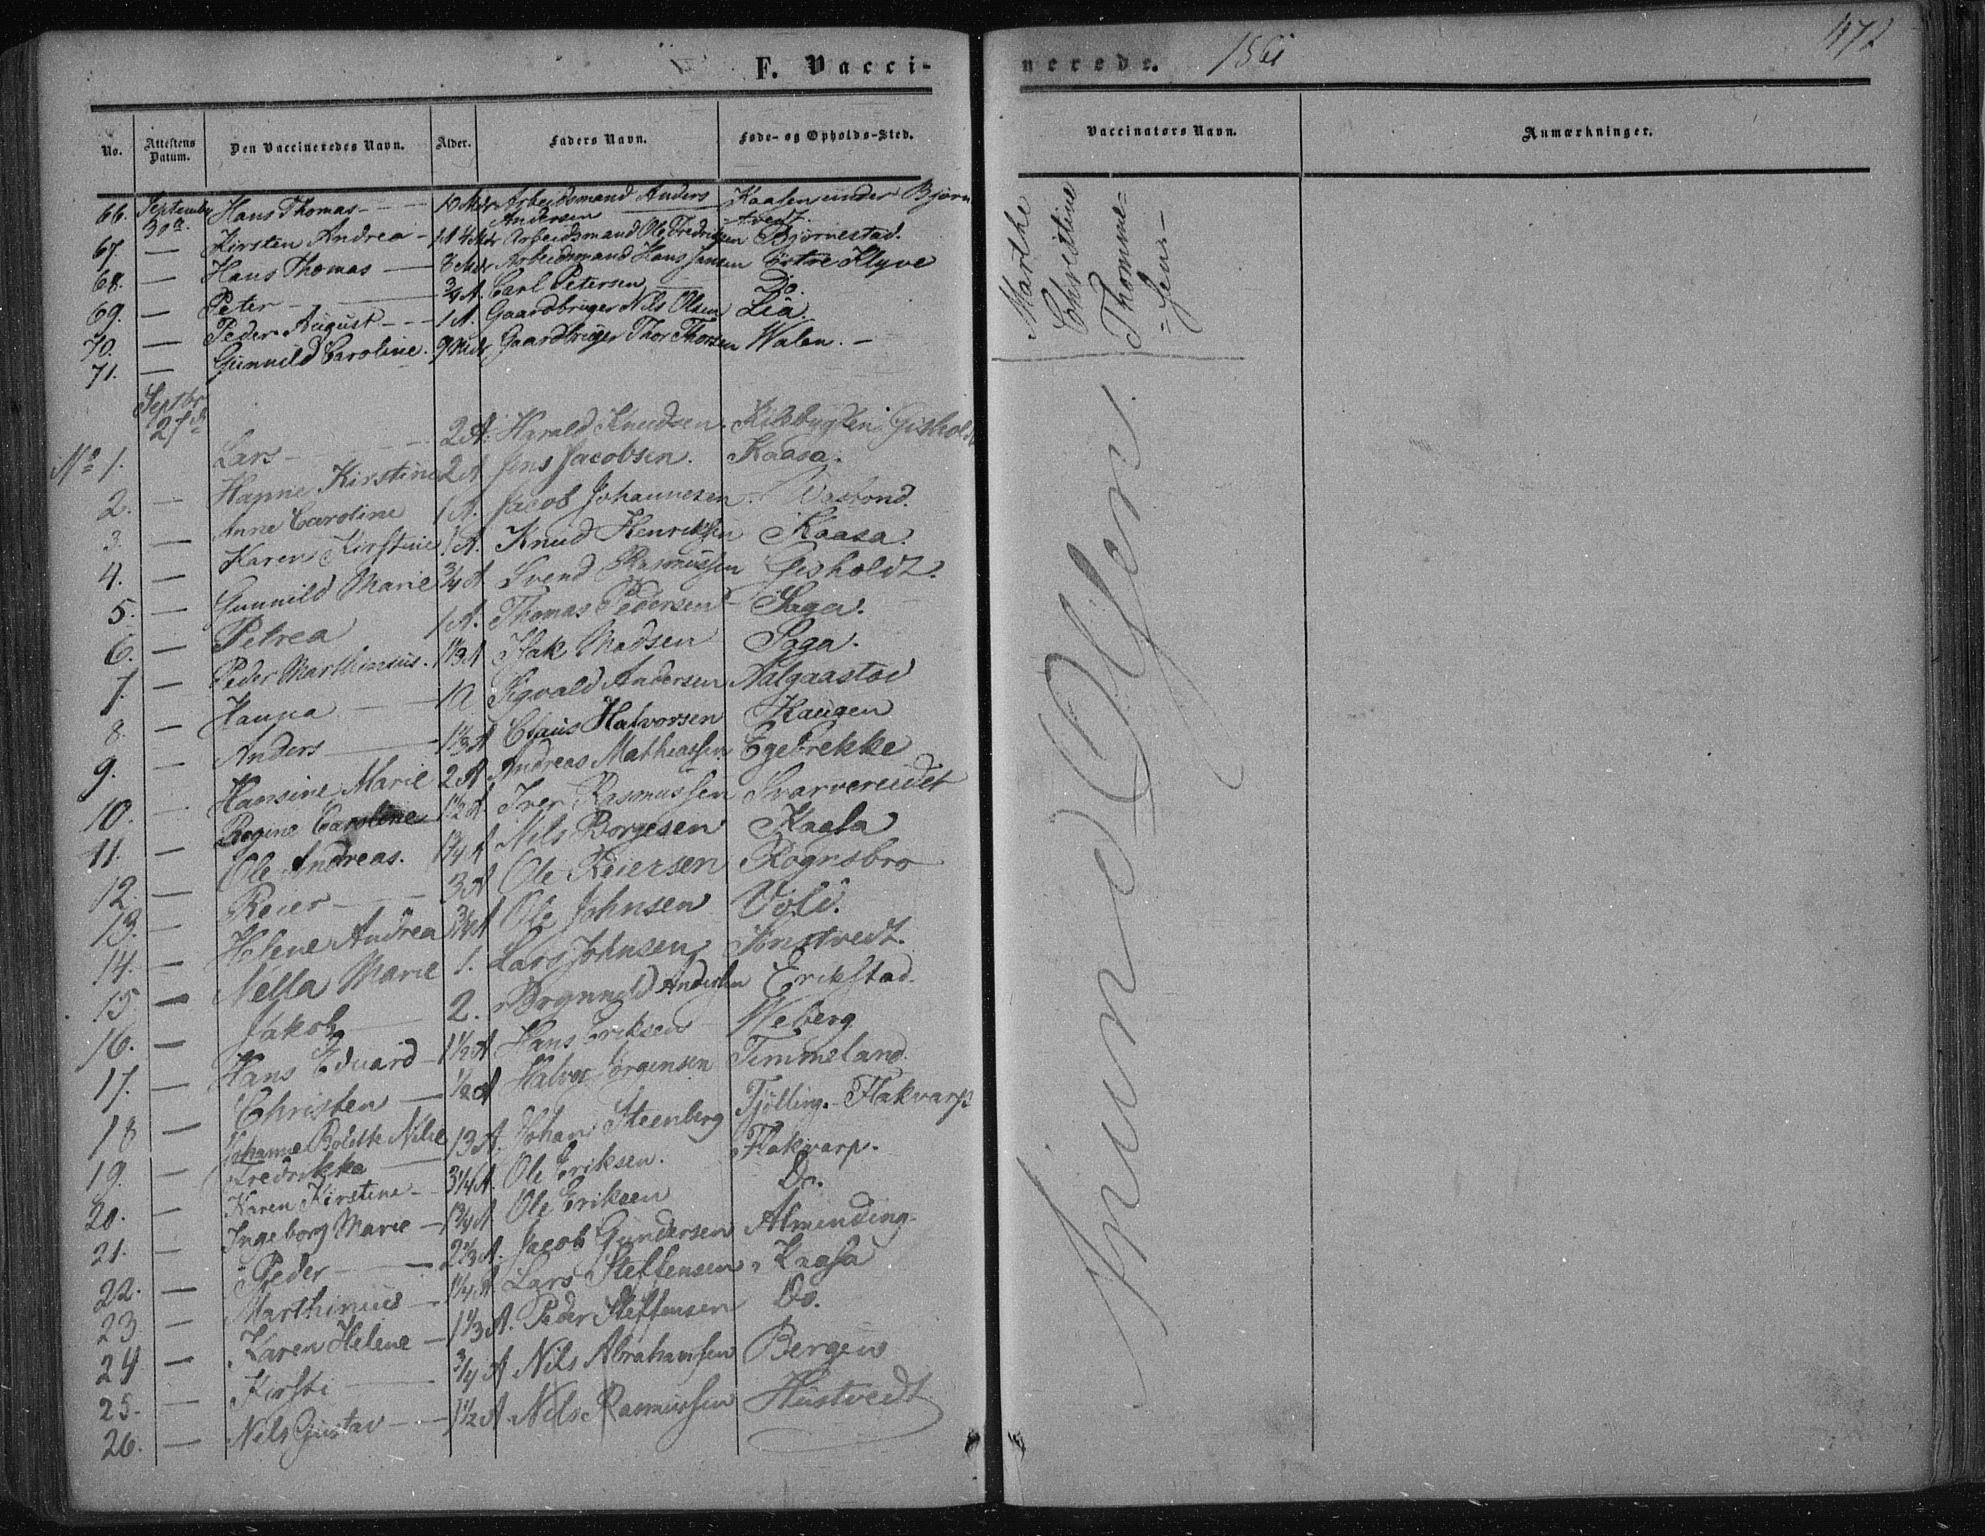 F. Vacci-
nerede. 186
472
No.
Attestens Datum.
Den Vaccineredes Navn.
Alder.
Faders Navn.
Føde- og Opholds-Sted.
Vaccinators Navn.
Anmærkninger.
66. September 30te Hans Thomas - 10 Mdr Arbeidsmand Anders Andersen Kaasen under Bjørntvedt.
67. — Kirsten Andrea - Arbeidsmand Ole Fredriksen Bjørnestad.
68. — Hans Thomas — 6 Mdr Arbeidsmand Hans Jensen østre Klyve
69. — Peter — 3/4 A. Carl Petersen Do.
70. — Peder August - 1 A. Gaardbruger Nils Olsen Lia.
71. — Gunnild Caroline. 9 Mdr Gaardbruger Thor Thorsen Walen. -
Marthe
Christine
Thomme-
-sen-
Septbr 27de
No 1. Lars - 2 A. Harald Knudsen. Kilebygten Gisholdt
2. — Hanne Kirstine 2 A Jens Jacobsen. Kaasa.
3. — Anne Caroline 1 A. Jacob Johannesen -
4. — Karen Kirstine 1 A. Knud Henriksen Kaasa.
5. — Gunnild Marie 3/4 A Svend Rasmussen Gisholdt.
6. — Petrea 1 A. Thomas Pedersen - Saga.
7. — Peder Marthinius. 1 1/3 A Isak Madsen Saga.
8. — Hanna — 1 A Sigvald Andersen
9. — Anders — 1 1/3 A Claus Halvorsen Haugen
10. — Hansine Marie 2 A Andreas Mathiassen Egebrekke
11. — Regine Caroline 1 1/2 A Iver Rasmussen Svarvereidet
12. — Ole Andreas. 1 1/4 A Nils Borgesen Kaasa
13. — Reier — 3 A Ole Reiersen Rognsbro
14. — Helene Andrea 3/4 A Ole Johnsen Vold.
15 — Nella Marie 1. Lars Johnsen
16. — Jakob — 2. Brynnild Andersen Erikstad.
17. — Hans Eduard - 1 1/2 A Hans Eriksen Meberg
18 — Christen — 1/2 A Halvor Jørgensen Timmeland.
19. — Johanne Bolette Nilie Fredrikka 13 A. Johan Steenberg Tjølling. - Flakvarp
20. — Karen Kirstine - 3 1/4 A. Ole Eriksen. Flakvarp.
21. — Ingeborg Marie — 1 3/4 A Ole Eriksen Do.
22. — Peder — 2 1/3 A. Jacob Gundersen Almending.
23. — Marthinius — 1 1/4 A Lars Steffensen. Kaasa
24 — Karen Helene — 1 1/3 A. Peder Steffensen Do.
25. — Kirsti — 3/4 A Nils Abrahamsen Bergen
26. — Nils Gustav — 1 1/2 A Nils Rasmussen Hustvedt
Amund Olsen.